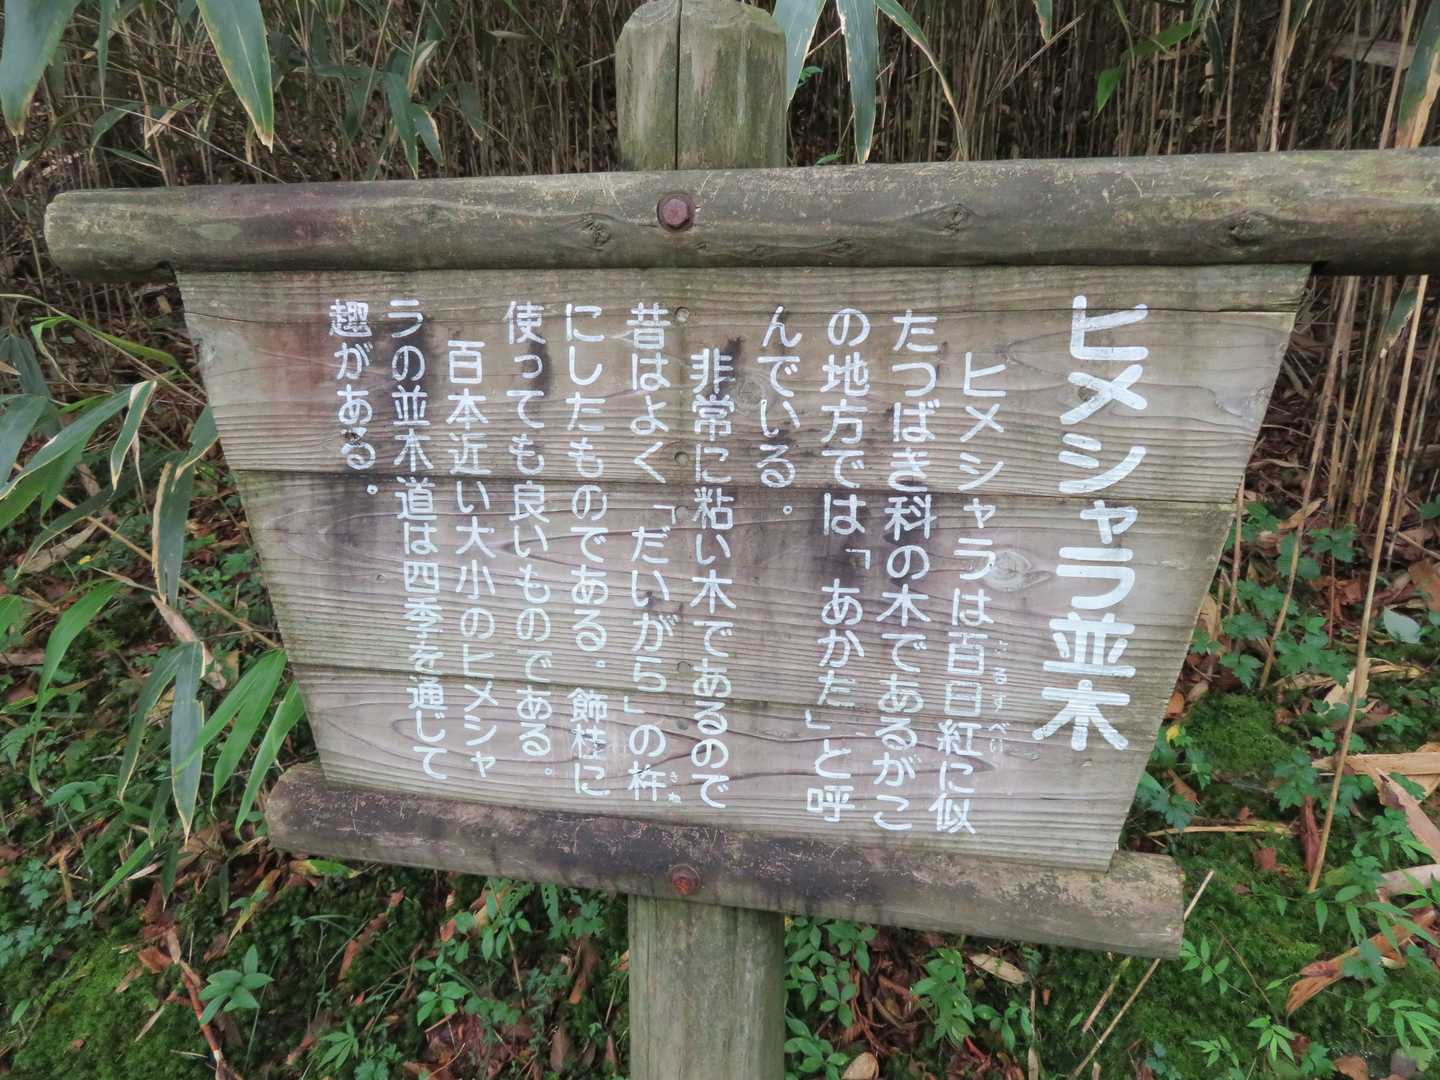 ヒメシャラ並木
ヒメシャラは百日紅に似
さるすべり
たつばき科の木であるがこ
の地方では「あかだ」と呼
んでいる。
非常に粘い木であるので
昔はよく「だいがら」の杵
きね
にしたものである。飾柱に
使っても良いものである。
百本近い大小のヒメシャ
ラの並木道は四季を通じて
趣がある。